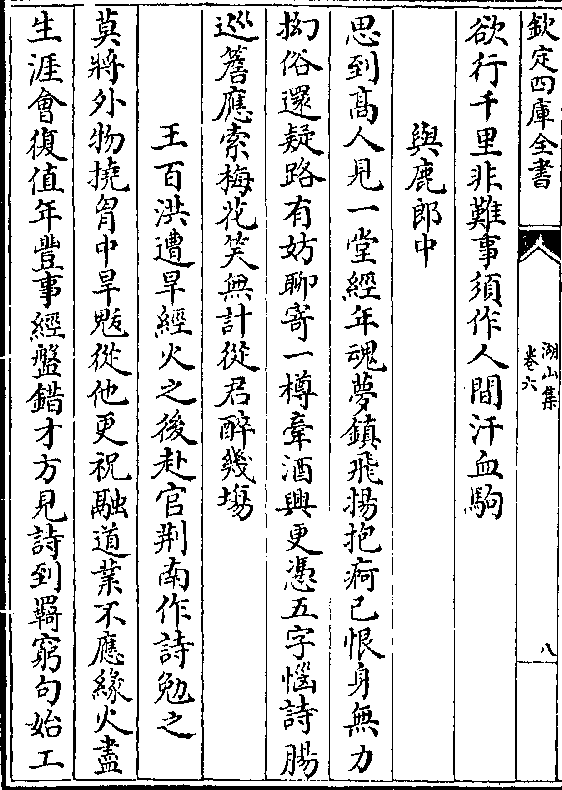 欽定四庫全書
湖山集
卷六
八
欲行千里非難事須作人間汗血駒
與鹿郎中
思到髙人見一堂經年魂夢鎮飛揚抱痾已恨身無力
拗俗還疑路有妨聊寄一樽牽酒興更憑五字惱詩腸
巡簷應索梅花笑無計從君醉幾塲
王百洪遭旱經火之後赴官荆南作詩勉之
莫將外物撓胷中旱魃從他更祝融道業不應緣火盡
生涯會復值年豐事經盤錯才方見詩到羇窮句始工